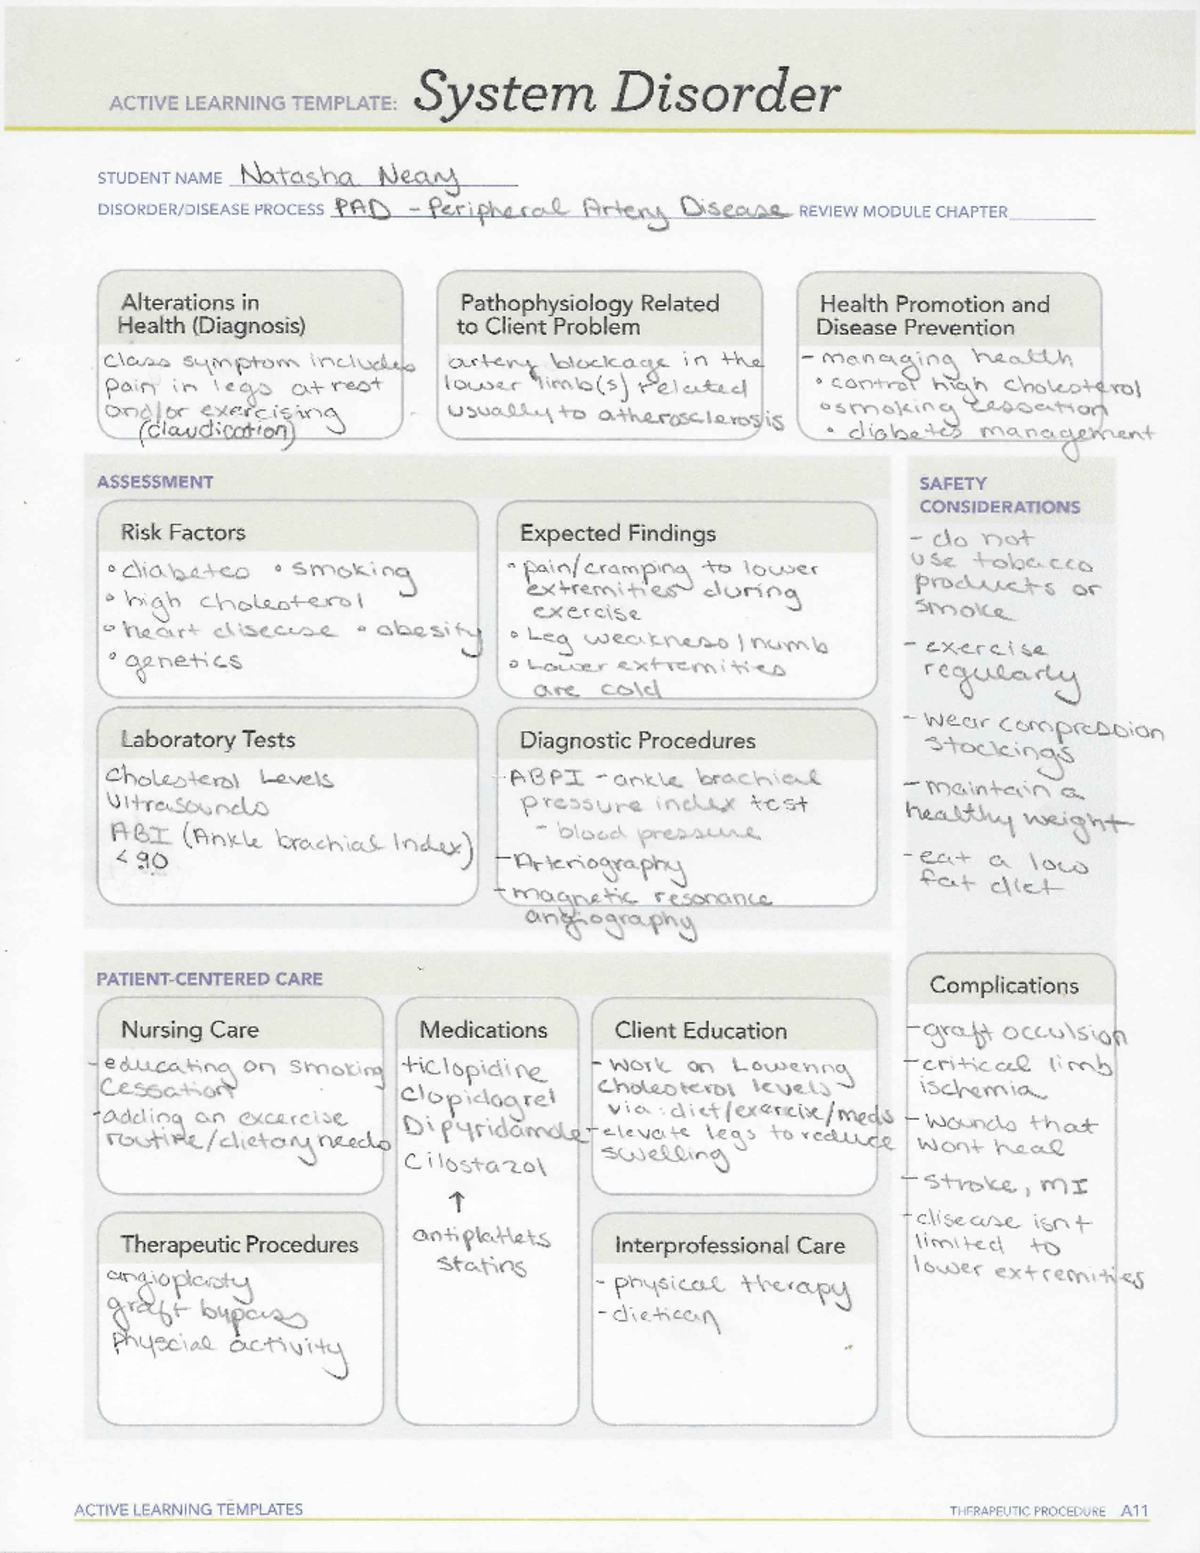 ACTIVE LEARNING TEMPLATE: System Disorder
STUDENT NAME Natasha Neary
DISORDER/DISEASE PROCESS PAD - Peripheral Artery Disease REVIEW MODULE CHAPTER
Alterations in
Health (Diagnosis)
Class symptom includes
pain in legs at rest
and/or exercising
(claudication)
Pathophysiology Related
to Client Problem
artery blockage in the
lower limb(s) related
usually to atherosclerosis
Health Promotion and
Disease Prevention
- managing health
• control high cholesterol
• smoking cessation
• diabetes management
ASSESSMENT
Risk Factors
• diabetes • smoking
• high cholesterol
• heart disease • obesity
• genetics
Expected Findings
• pain/cramping to lower
extremities during
exercise
• Leg weakness/numb
• Lower extremities
are cold
Laboratory Tests
Cholesterol Levels
Ultrasounds
ABI (Ankle brachial Index)
< 90
Diagnostic Procedures
- ABPI - ankle brachial
pressure index test
- blood pressure
- Arteriography
- magnetic resonance
angiography
SAFETY
CONSIDERATIONS
- do not
use tobacco
products or
smoke
- exercise
regularly
- wear compression
stockings
- maintain a
healthy weight
- eat a low
fat diet
PATIENT-CENTERED CARE
Nursing Care
- educating on smoking
cessation
- adding an excercise
routine/dietary needs
Medications
ticlopidine
Clopidogrel
Dipyridamole
Cilostazol
↑
antiplatlets
statins
Client Education
- work on Lowering
cholesterol levels
via: diet/exercise/meds
- elevate legs to reduce
swelling
Therapeutic Procedures
angioplasty
graft bypass
Physcial activity
Interprofessional Care
- physical therapy
- dietican
Complications
- graft occulsion
- critical limb
ischemia
- wounds that
wont heal
- stroke, MI
- disease isnt
limited to
lower extremities
ACTIVE LEARNING TEMPLATES
THERAPEUTIC PROCEDURE A11